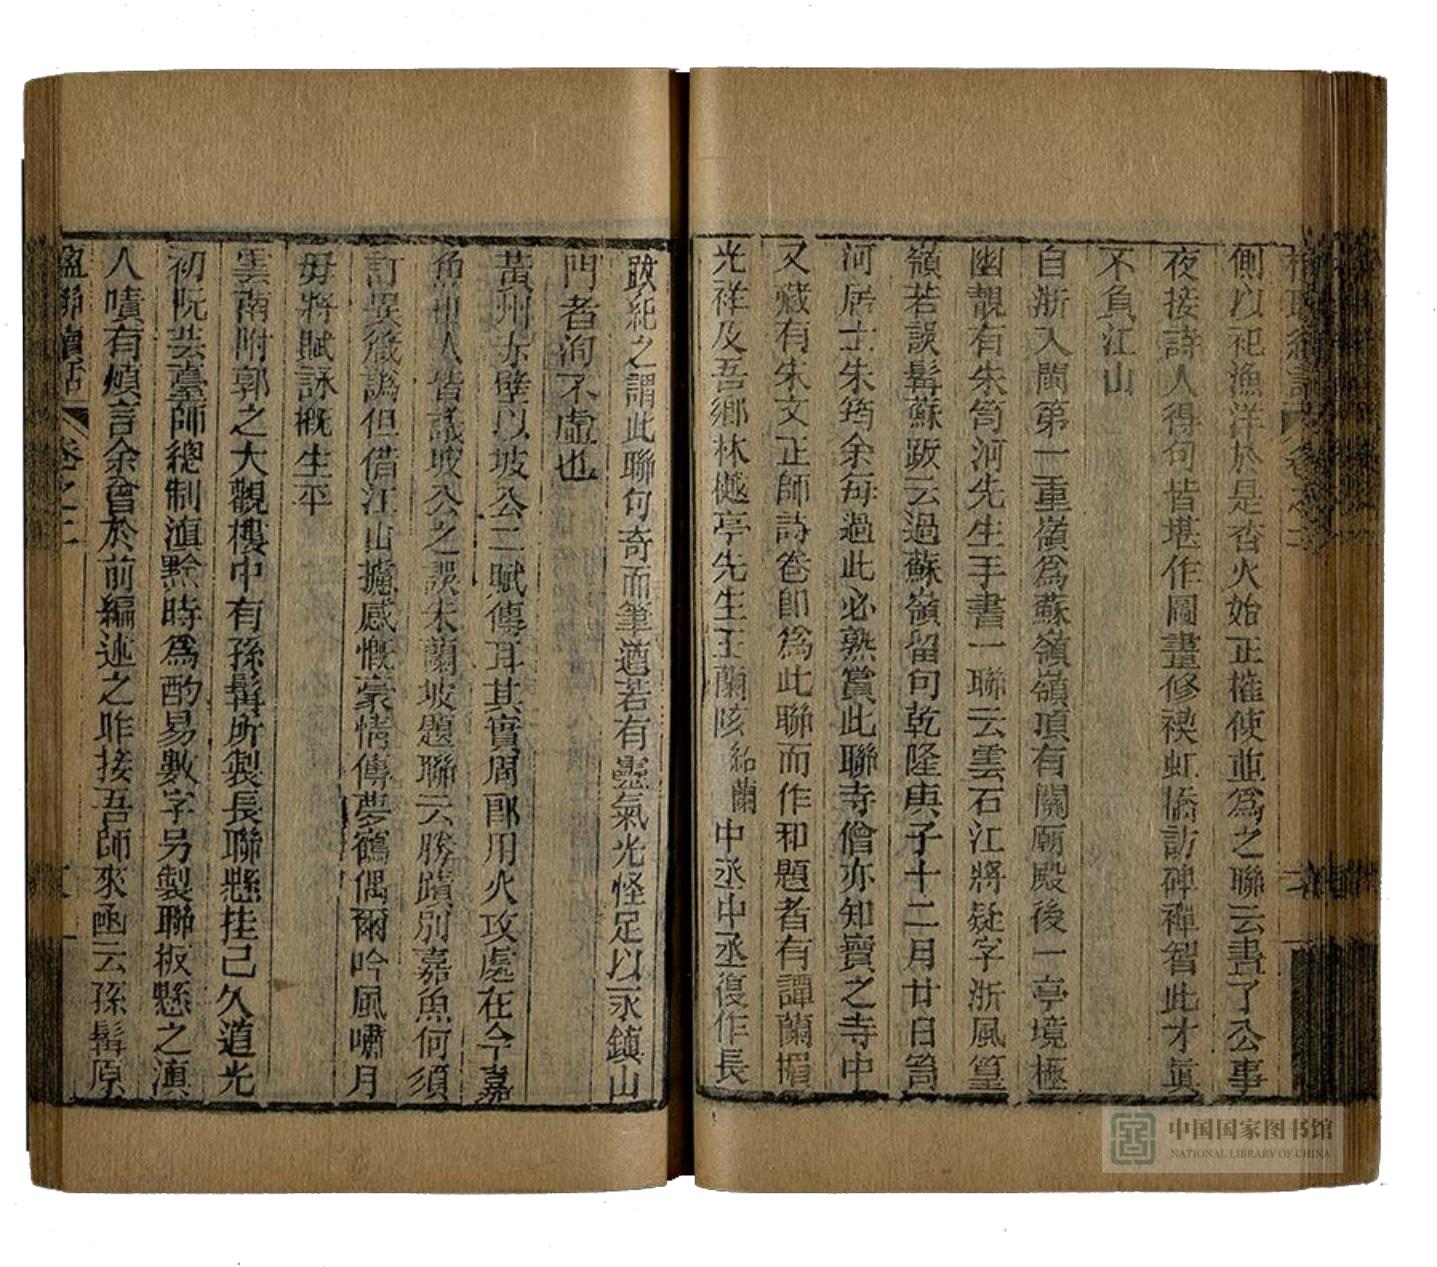 楹聯續話 卷之二
側以祀漁洋於是香火始正權使並為之聯云晝了公事
夜接詩人得句皆堪作圖畫修禊虹橋訪碑禪智此才眞
不負江山
自浙入閩第一重嶺爲蘇嶺嶺項有關廟殿後一亭境極
幽靚有朱笥河先生手書一聯云雲石江將疑字浙風篁
嶺若談髯蘇跋云過蘇嶺留句乾隆庚子十二月廿日笥
河居士朱筠余每過此必熟賞此聯寺僧亦知寶之寺中
又藏有朱文正師詩卷卽爲此聯而作和題者有譚蘭楣
光祥及吾鄉林樾亭先生王蘭陔紹蘭中丞中丞復作長
跋紀之謂此聯句奇而筆遒若有靈氣光怪足以永鎮山
門者洵不虛也
黃州赤壁以坡公二賦傳耳其實周郎用火攻處在今嘉
魚也人皆議坡公之誤朱蘭坡題聯云勝蹟別嘉魚何須
訂異箴譌但借江山攄感慨豪情傳夢鶴偶爾吟風嘯月
毋將賦詠概生平
雲南附郭之大觀樓中有孫髯所製長聯懸挂已久道光
初阮芸臺師總制滇黔時爲酌易數字另製聯板懸之滇
人嘖有煩言余曾於前編述之昨接吾師來函云孫髯原
楹聯續話 卷之二
中国国家图书馆
NATIONAL LIBRARY OF CHINA